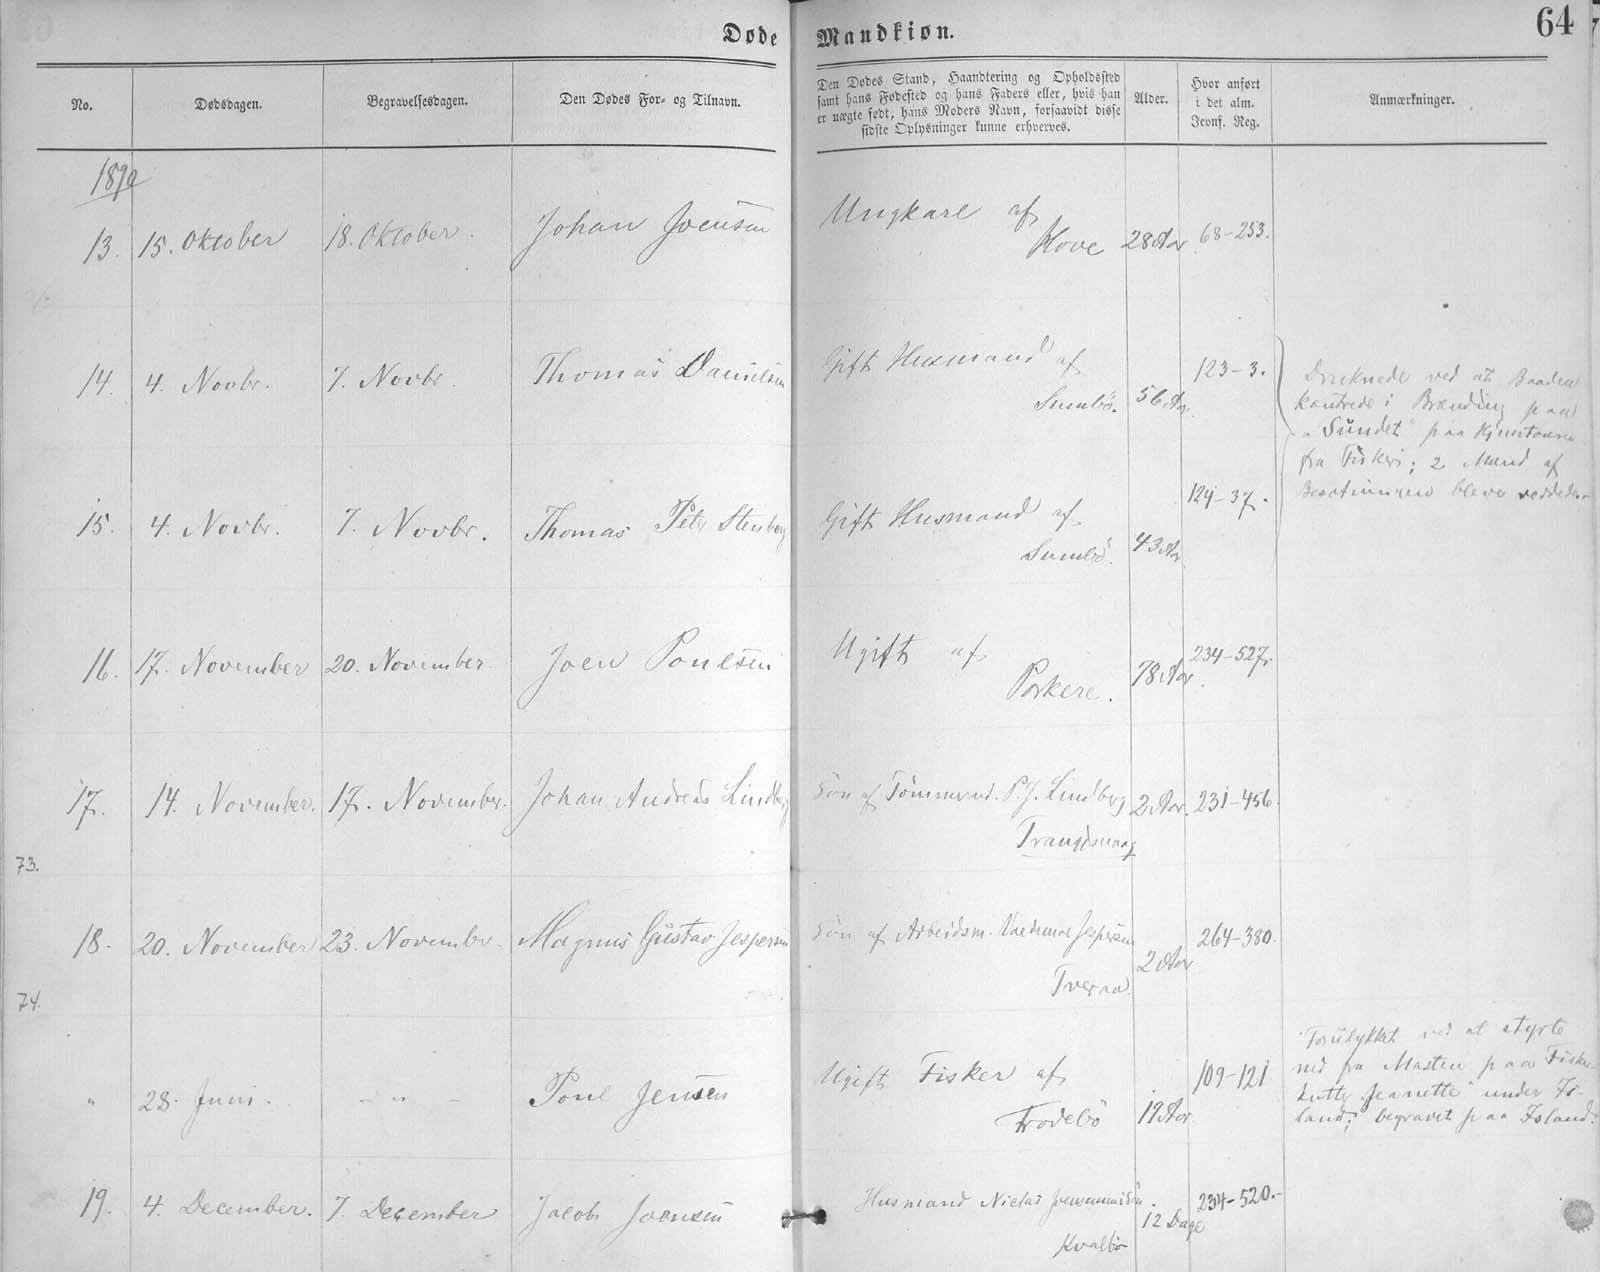 Døde Mandkiøn.
64
No.
Dødsdagen.
Begravelsesdagen.
Den Dødes For- og Tilnavn.
Den Dødes Stand, Haandtering og Opholdssted
samt hans Fødested og hans Faders eller, hvis han
er uægte født, hans Moders Navn, forsaavidt disse
sidste Oplysninger kunne erhverves.
Alder.
Hvor anført
i det alm.
Jevnf. Reg.
Anmærkninger.
13. 15. Oktober 18. Oktober. Johan Joensen
Ungkarl af
Hove 28 Aar 68-253.
14. 4. Novbr. 7. Novbr. Thomas Danielsen
Gift Husmand af
Sumbö. 56 Aar. 123-3.
Druknede ved at Baaden
kæntrede i Brænding paa
"Sundet" paa
fra Fiskeri; 2 Mand af
Besætningen bleve reddede.
15. 4. Novbr. 7. Novbr. Thomas Peter Stenberg
Gift Husmand af
Sumbö. 43 Aar 124-37.
16. 17. November 20. November. Joen Poulsen
Ugift af
Porkere. 78 Aar 234-527.
17. 14. November. 17. November. Johan Andreas Lindberg
Sön af Tömmermd. P. J. Lindberg
Trangisvaag 2 Aar. 231-456.
73.
18. 20. November 23. Novembr. Magnus Gustav Jespersen
Sön af Arbeidsm. Valdemar Jespersen
Tveraa. 2 Aar 264-380.
74.
" 28. Juni. - " - Poul Jensen
Ugift Fisker af
Frodebö 19 Aar. 109-121
Forulykket ved at styrte
ned fra Masten paa Fisker-
kutter "Jeanette" under Is-
land; begravet paa Island.
19. 4. December. 7. December Jacob Joensen
Husmand Niclas Joensens Sön
Kvalbö 12 Dage 234-520.